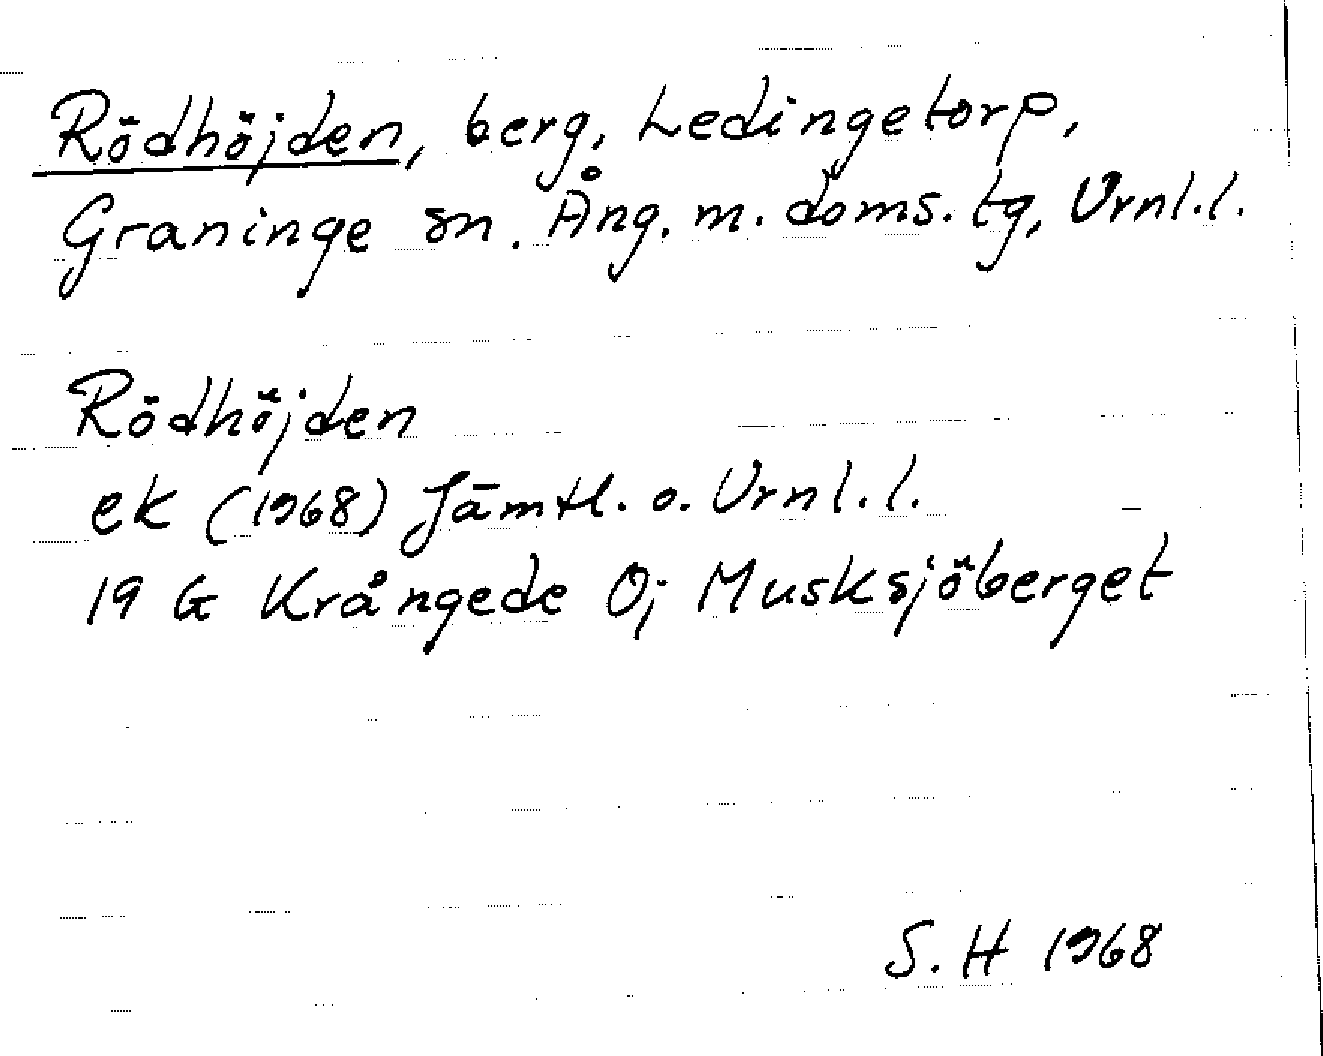 Rödhöjden, berg, Ledingetorp,
Graninge sn. Ång. m. doms. tg, Vrnl.l.
Rödhöjden
ek (1968) Jämtl. o. Vrnl.l.
19 G Krångede Oj Musksjöberget
S. H 1968